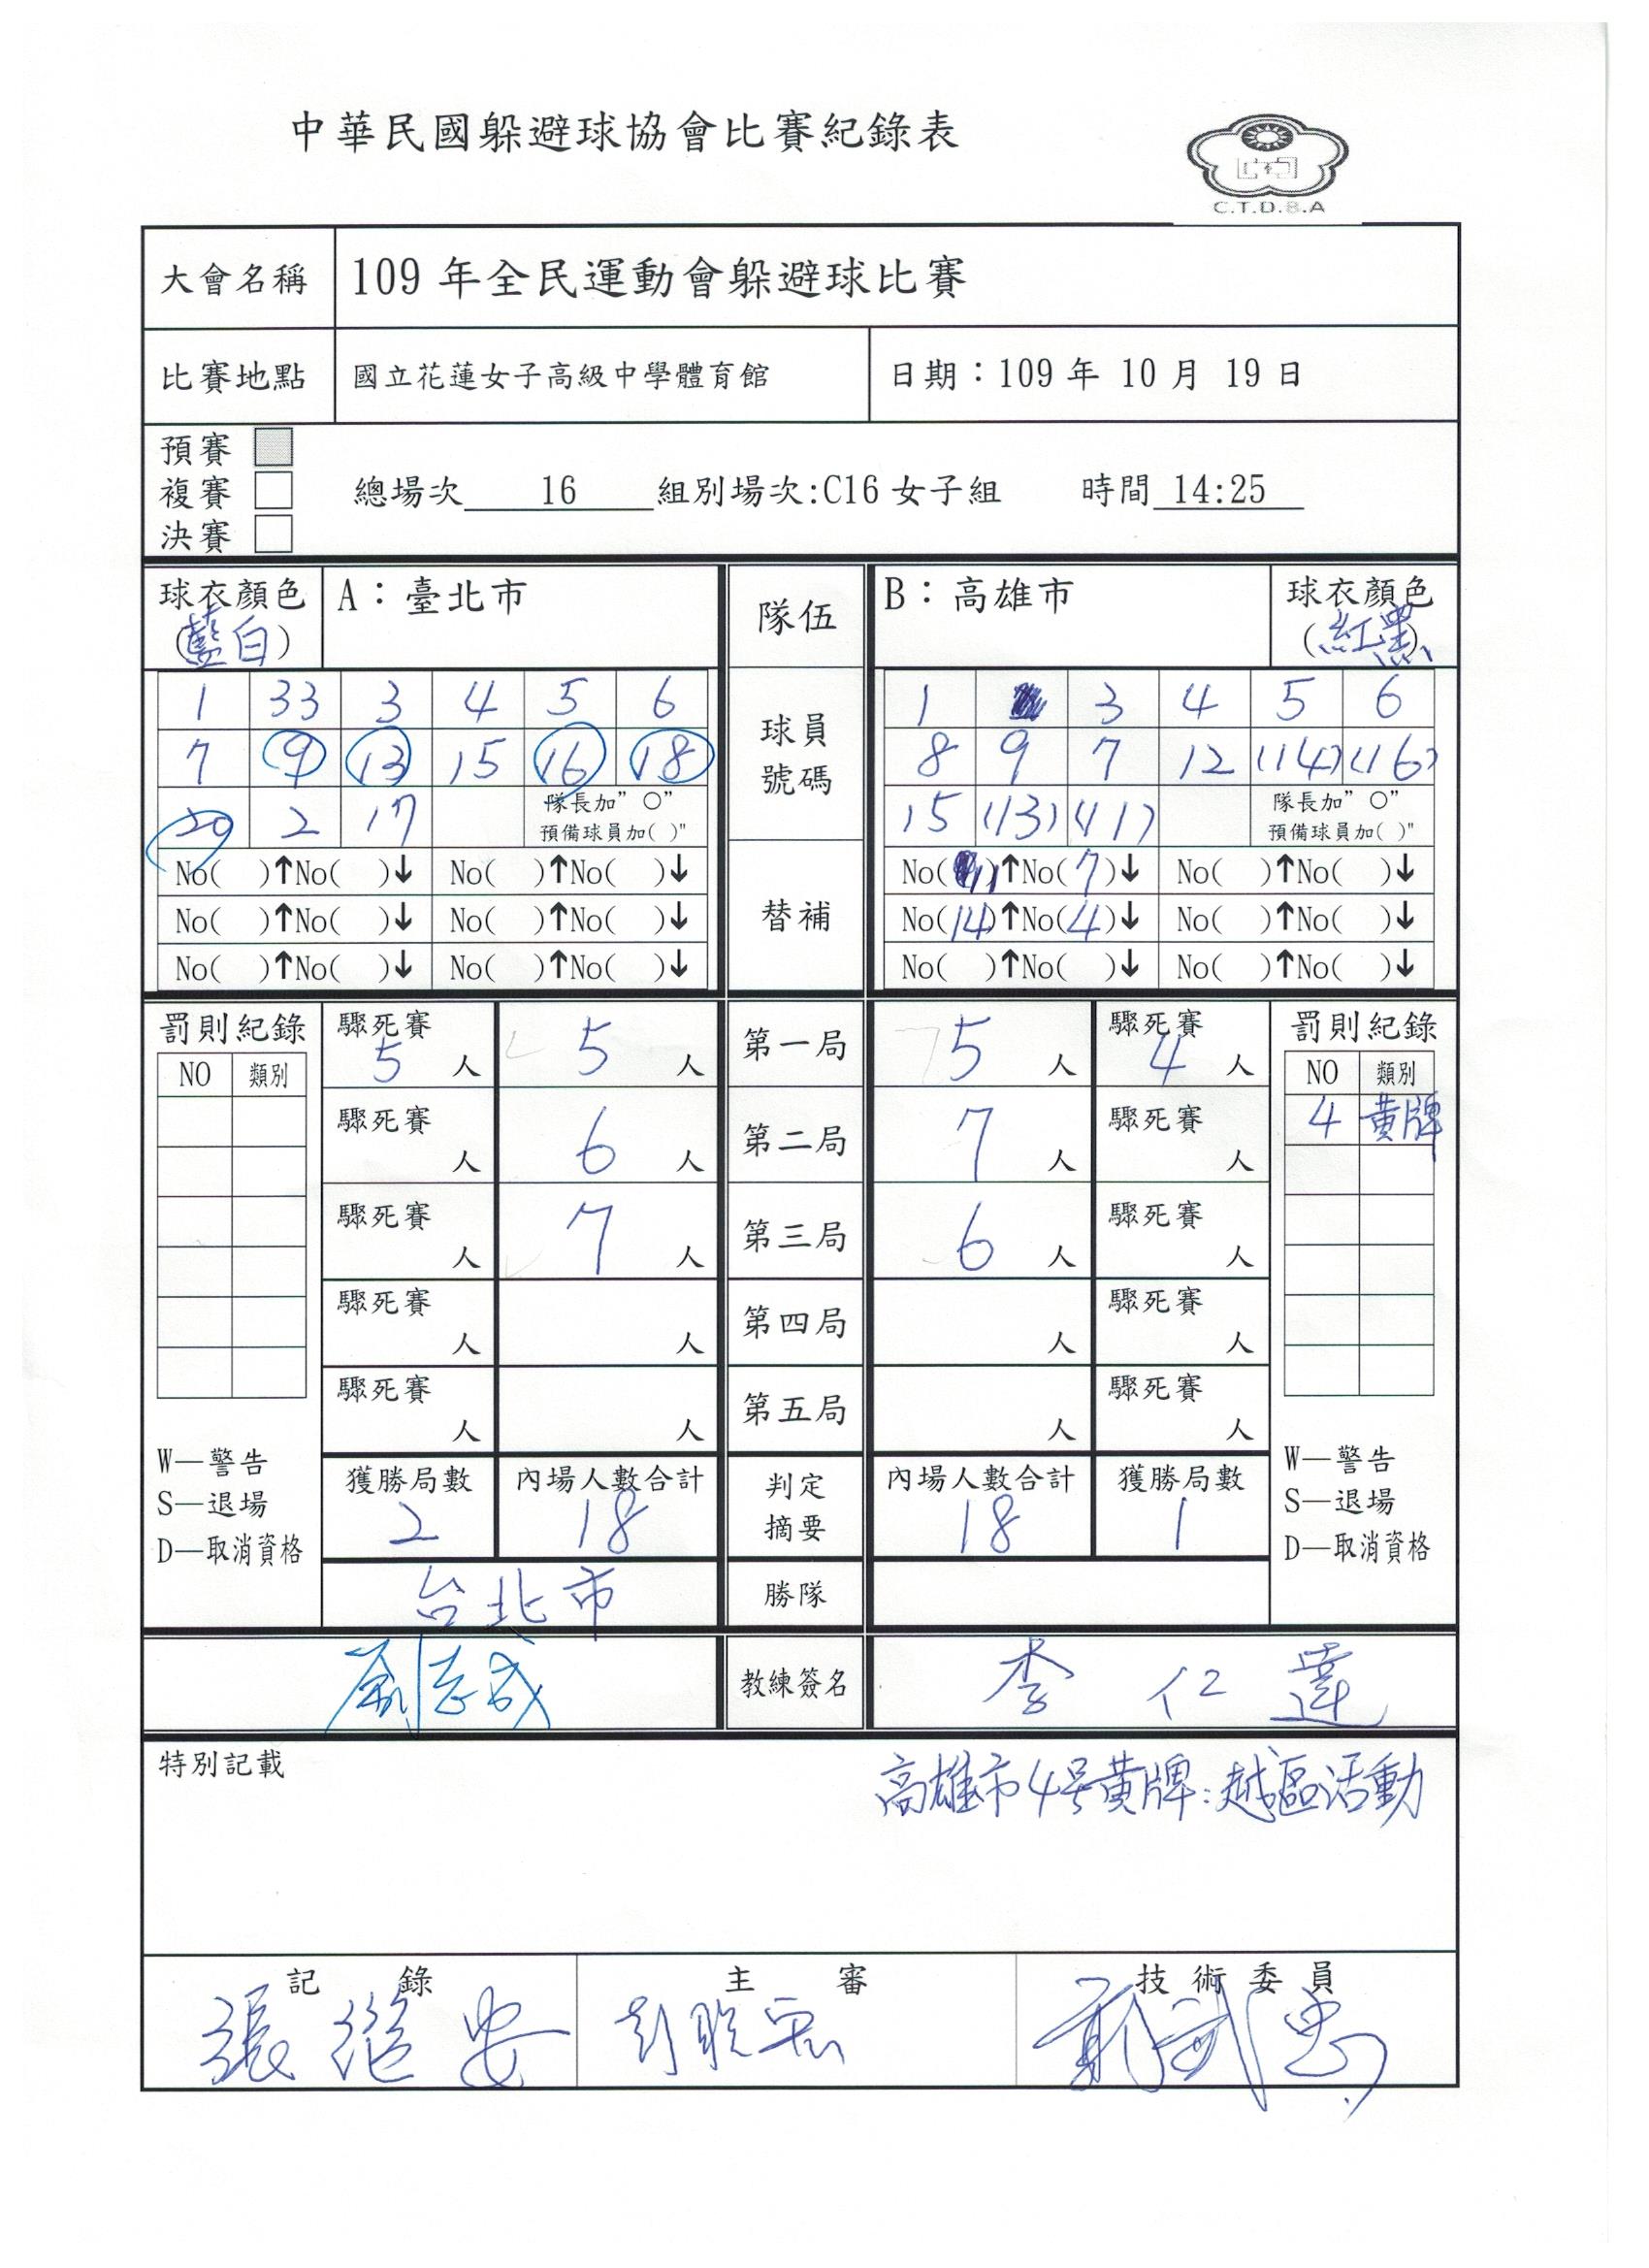 中華民國躲避球協會比賽紀錄表
C.T.D.B.A
大會名稱 109 年全民運動會躲避球比賽
比賽地點 國立花蓮女子高級中學體育館 日期：109 年 10 月 19 日
預賽
複賽
決賽
總場次 16 組別場次:C16 女子組 時間 14:25
球衣顏色 A：臺北市 隊伍 B：高雄市 球衣顏色
(藍白) (紅黑)
1 33 3 4 5 6 球員 1 3 4 5 6
7 9 13 15 16 18 號碼 8 9 7 12 (14) (16)
20 2 17 隊長加"○" 15 (13) (11) 隊長加"○"
預備球員加( )" 預備球員加( )"
No( )↑No( )↓ No( )↑No( )↓ 替補 No(11)↑No(7)↓ No( )↑No( )↓
No( )↑No( )↓ No( )↑No( )↓ No(14)↑No(4)↓ No( )↑No( )↓
No( )↑No( )↓ No( )↑No( )↓ No( )↑No( )↓ No( )↑No( )↓
罰則紀錄 驟死賽 5 人 5 人 第一局 5 人 驟死賽 4 人 罰則紀錄
NO 類別 NO 類別
4 黃牌
驟死賽 人 6 人 第二局 7 人 驟死賽 人
驟死賽 人 7 人 第三局 6 人 驟死賽 人
驟死賽 人 人 第四局 人 驟死賽 人
驟死賽 人 人 第五局 人 驟死賽 人
W—警告 W—警告
S—退場 S—退場
D—取消資格 D—取消資格
獲勝局數 內場人數合計 判定 內場人數合計 獲勝局數
2 18 摘要 18 1
台北市 勝隊
劉志成 教練簽名 李仁達
特別記載
高雄市4号黃牌:越區活動
記 錄 主 審 技術委員
張繼安